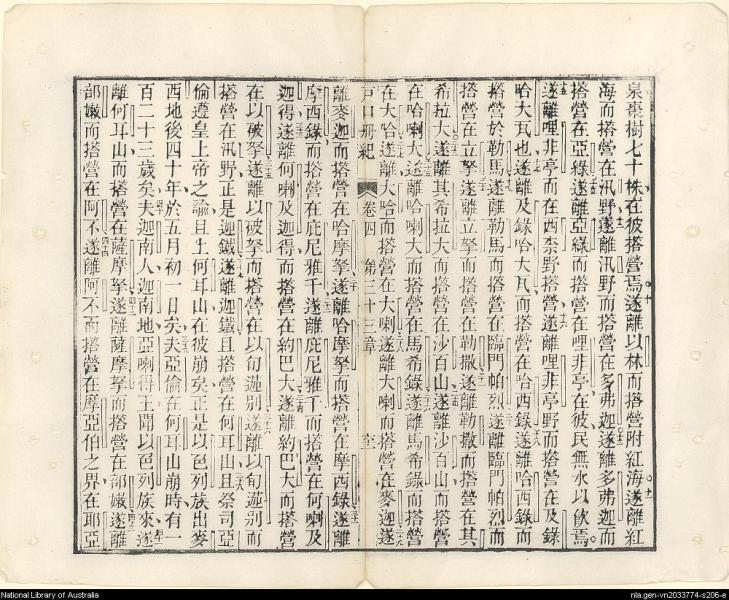 泉棗樹七十株在彼搭營焉遂離以林而搭營附紅海遂離紅
海而搭營在汛野遂離汛野而搭營在多弗迦遂離多弗迦而
搭營在亞綠遂離亞綠而搭營在哩非亭在彼民無水以飲焉
遂離哩非亭而在西柰野搭營遂離哩非亭野而搭營在及錄
哈大瓦也遂離及錄哈大瓦而搭營在哈西錄遂離哈西錄而
搭營於勒馬遂離勒馬而搭營在臨門帕烈遂離臨門帕烈而
搭營在立拏遂離立拏而搭營在勒撒遂離勒撒而搭營在其
希拉大遂離其希拉大而搭營在沙百山遂離沙百山而搭營
在哈喇大遂離哈喇大而搭營在馬希錄遂離馬希錄而搭營
在大哈遂離大哈而搭營在大喇遂離大喇而搭營在麥迦遂
戶口冊紀 卷四 第三十三章
離麥迦而搭營在哈摩拏遂離哈摩拏而搭營在摩西錄遂離
摩西錄而搭營在庇尼雅千遂離庇尼雅千而搭營在何喇及
迦得遂離何喇及迦得而搭營在約巴大遂離約巴大而搭營
在以破拏遂離以破拏而搭營在以旬遄別遂離以旬遄別而
搭營在汛野正是迦鐵遂離迦鐵且搭營在何耳山且祭司亞
倫遵皇上帝之諭且上何耳山在彼崩矣正是以色列族出麥
西地後四十年於五月初一日矣夫亞倫在何耳山崩時有一
百二十三歲矣夫迦南人迦南地亞喇得王聞以色列族來遂
離何耳山而搭營在薩摩拏遂離薩摩拏而搭營在部嫩遂離
部嫩而搭營在阿不遂離阿不而搭營在摩亞伯之界在耶亞
National Library of Australia
nla.gen-vn2033774-s206-e